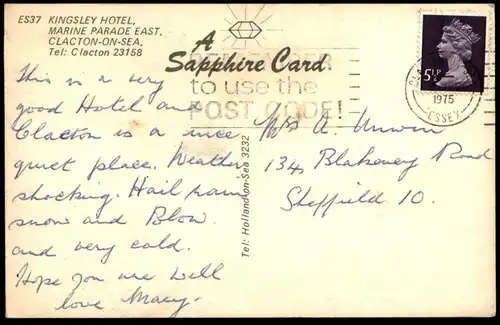 ES37 KINGSLEY HOTEL,
MARINE PARADE EAST,
CLACTON-ON-SEA,
Tel: Clacton 23158
A
Sapphire Card
REMEMBER
to use the
POST CODE!
5½P
1975
ESSEX
This is a very
good Hotel and
Clacton is a nice
quiet place. Weather
shocking. Hail rain
snow and Blow.
and very cold.
Hope you are well
love Mary.
Tel: Holland-on-Sea 3232
Mrs A. Unwin
134 Blakeney Road
Sheffield 10.